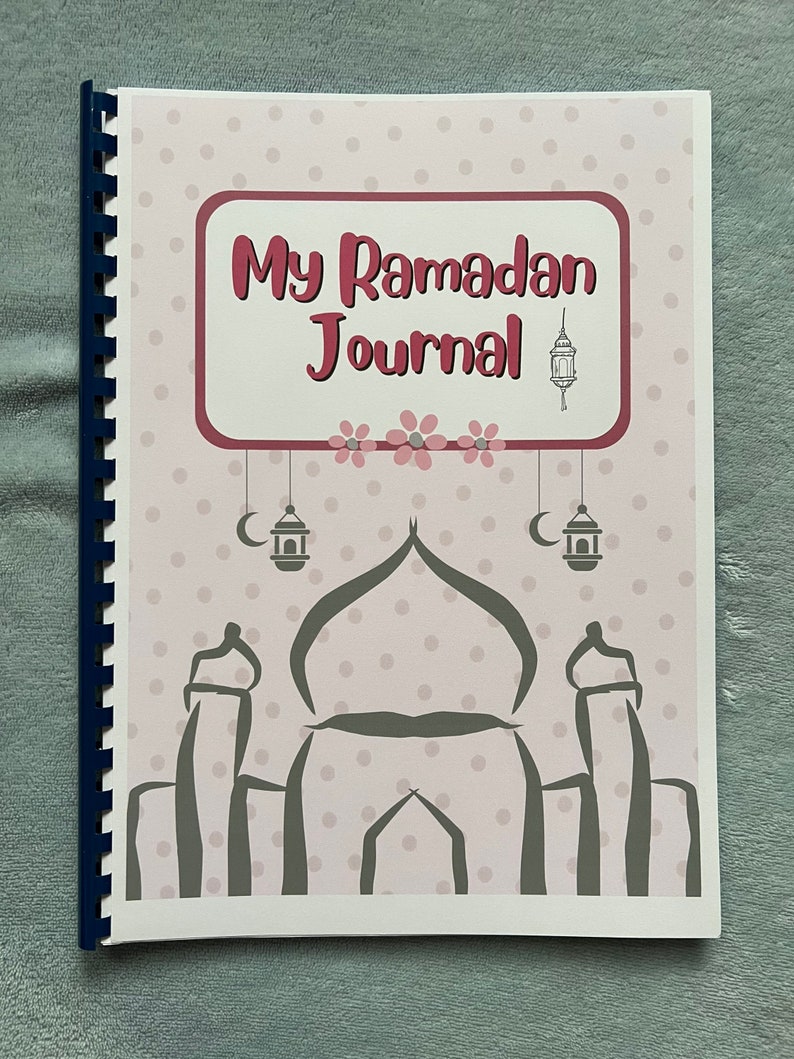 My Ramadan
Journal